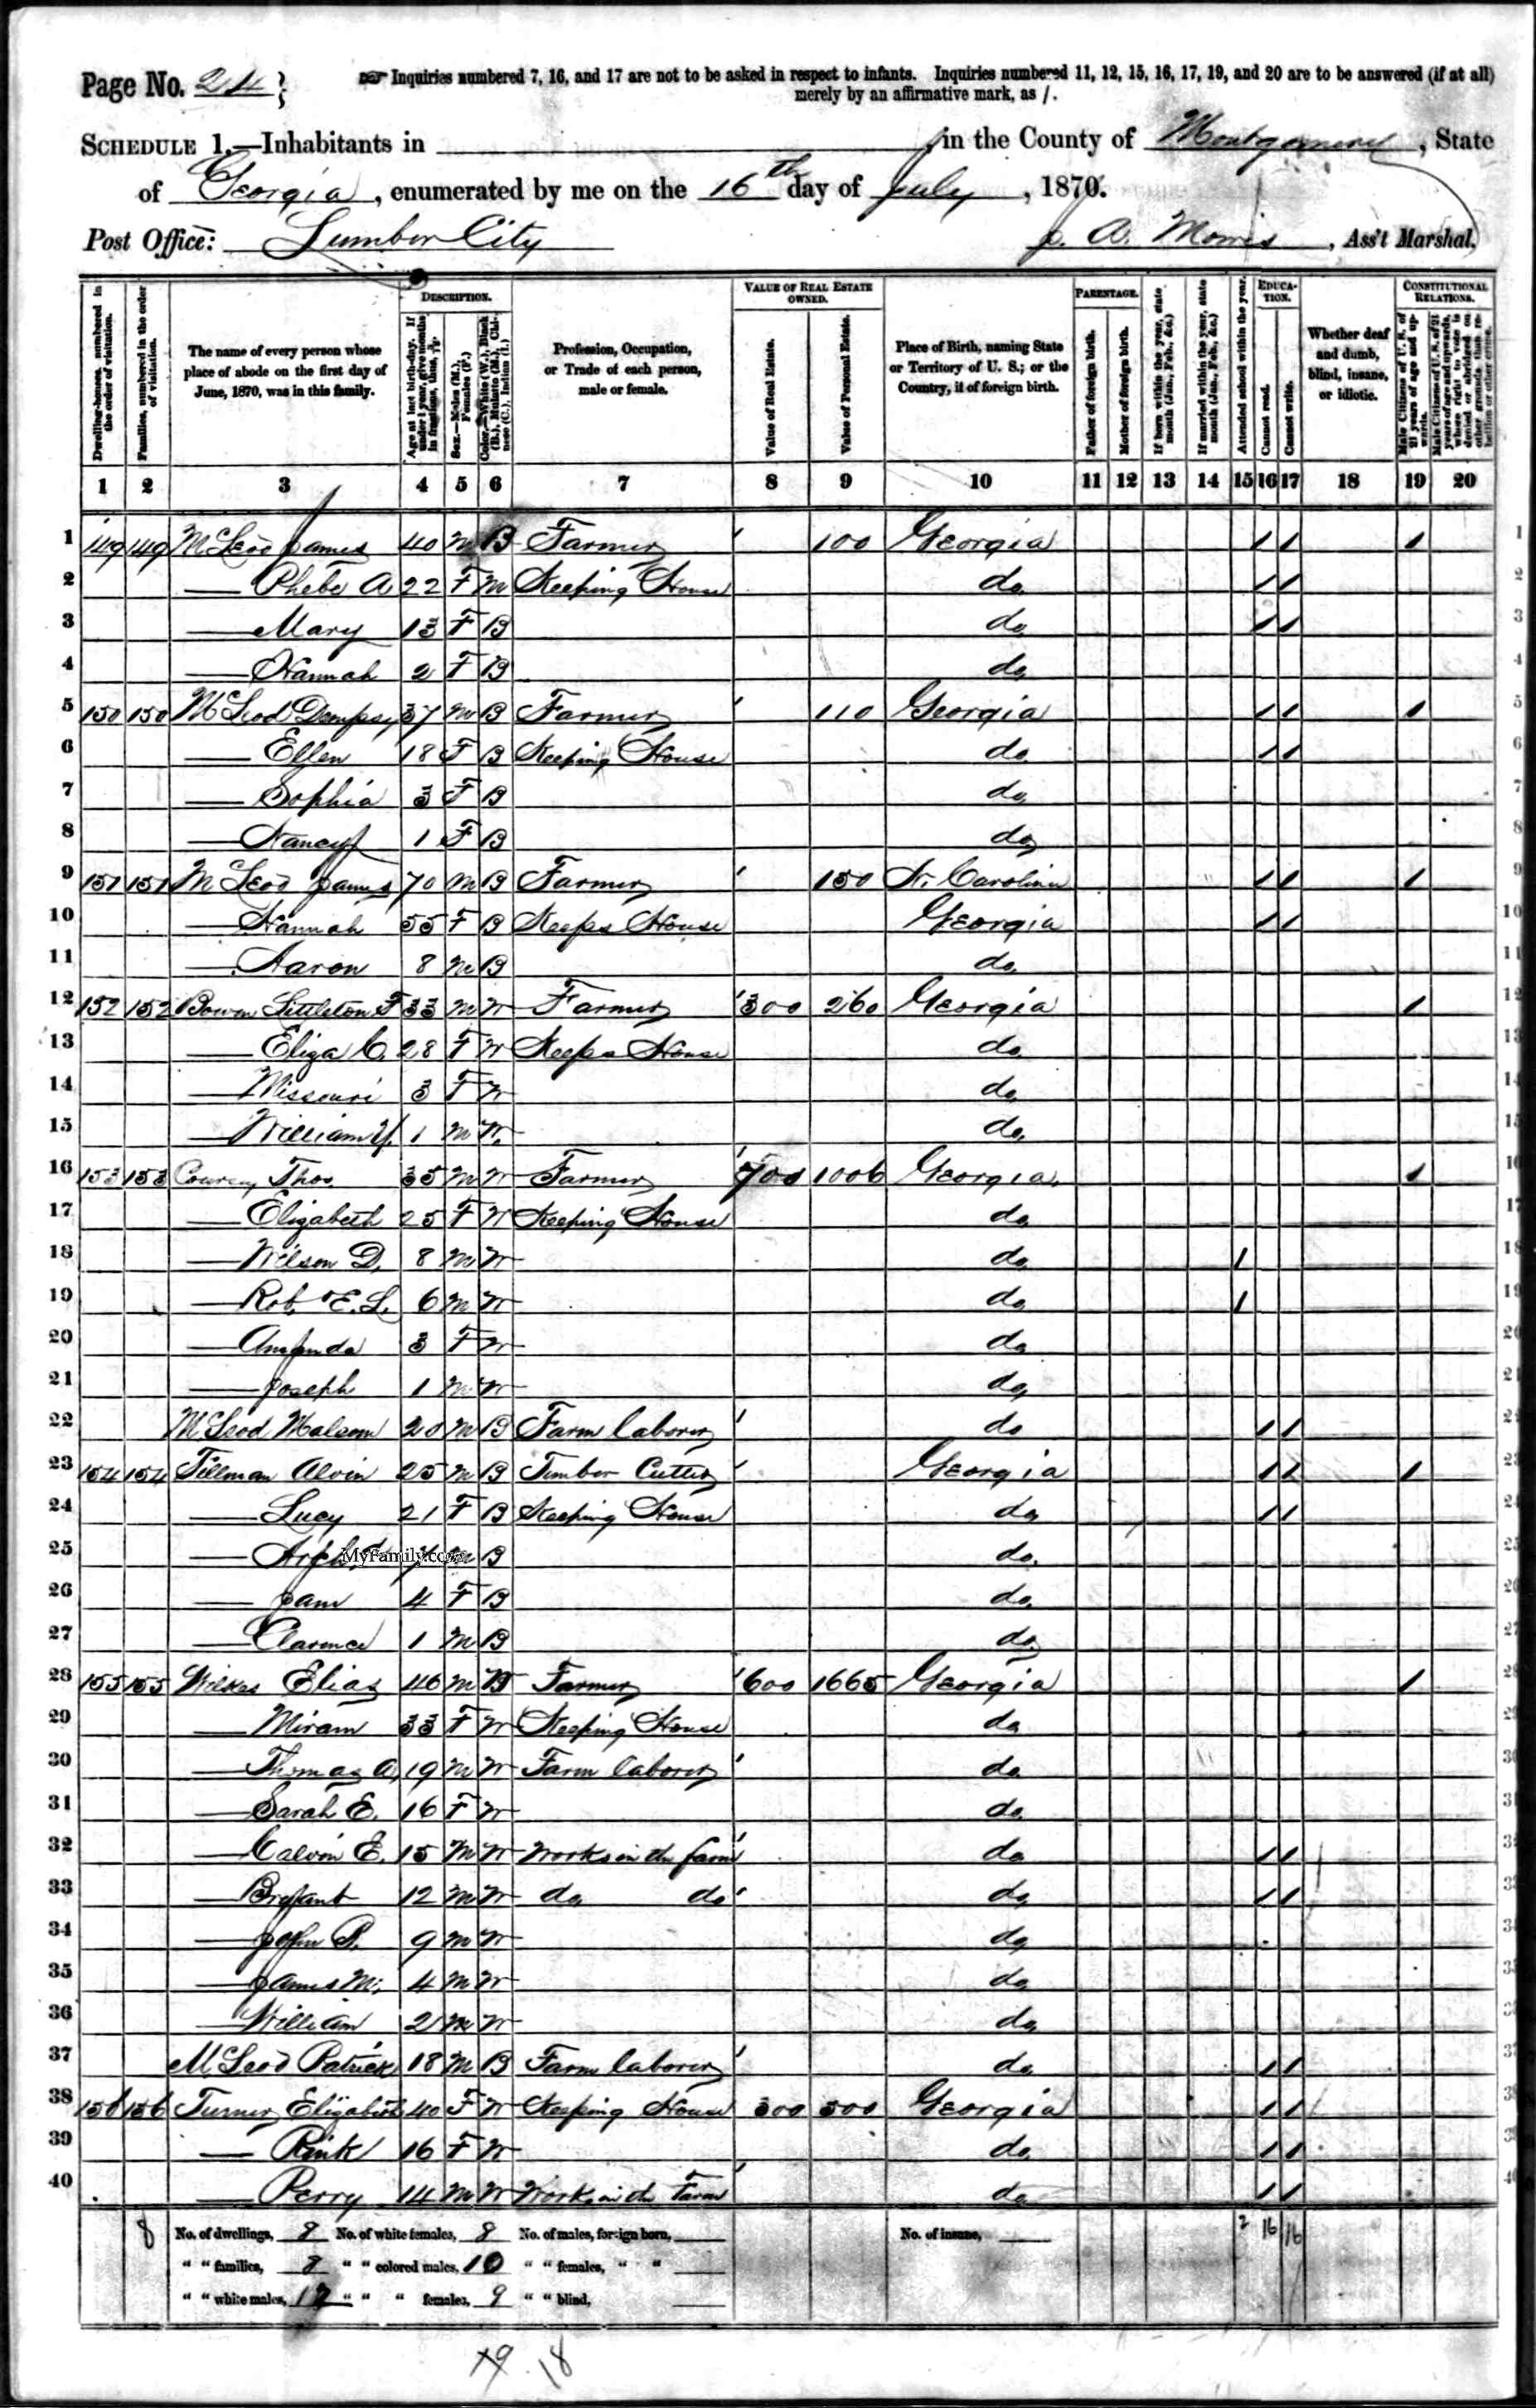 Page No. 24
Inquiries numbered 7, 16, and 17 are not to be asked in respect to infants. Inquiries numbered 11, 12, 15, 16, 17, 19, and 20 are to be answered (if at all)
merely by an affirmative mark, as /.
SCHEDULE 1.—Inhabitants in , in the County of Montgomery, State
of Georgia, enumerated by me on the 16th day of July, 1870.
Post Office: Lumber City J. A. Morris, Ass't Marshal.
Dwelling-houses, numbered in the order of visitation.
Families, numbered in the order of visitation.
The name of every person whose place of abode on the first day of June, 1870, was in this family.
DESCRIPTION.
Age at last birth-day. If under 1 year, give months in fractions, thus,
Sex.—Males (M.), Females (F.)
Color.—White (W.), Black (B.), Mulatto (M.), Chinese (C.), Indian (I.)
Profession, Occupation, or Trade of each person, male or female.
VALUE OF REAL ESTATE OWNED.
Value of Real Estate.
Value of Personal Estate.
Place of Birth, naming State or Territory of U. S.; or the Country, if of foreign birth.
PARENTAGE.
Father of foreign birth.
Mother of foreign birth.
If born within the year, state month (Jan., Feb., &c.)
If married within the year, state month (Jan., Feb., &c.)
Attended school within the year.
EDUCATION.
Cannot read.
Cannot write.
Whether deaf and dumb, blind, insane, or idiotic.
CONSTITUTIONAL RELATIONS.
Male Citizens of U. S. of 21 years of age and upwards.
Male Citizens of U. S. of 21 years of age and upwards, where right to vote is denied or abridged on other grounds than rebellion or other crime.
1 2 3 4 5 6 7 8 9 10 11 12 13 14 15 16 17 18 19 20
1 149 149 McLeod James 40 M B Farmer 100 Georgia / / / 1
2 — Phebe A 22 F M Keeping House do / / 2
3 — Mary 13 F B do / / 3
4 — Hannah 2 F B do 4
5 150 150 McLeod Dempsey 37 M B Farmer 110 Georgia / / / 5
6 — Ellen 18 F B Keeping House do / / 6
7 — Sophia 3 F B do 7
8 — Nancy 1 F B do 8
9 151 151 McLeod James 70 M B Farmer 150 N. Carolina / / / 9
10 — Hannah 55 F B Keeps House Georgia / / 10
11 — Aaron 8 M B do 11
12 152 152 Bowen Littleton F 33 M W Farmer 300 260 Georgia / 12
13 — Eliza C. 28 F W Keeps House do 13
14 — Missouri 3 F W do 14
15 — William 1 M W do 15
16 153 153 Thos. 35 M W Farmer 700 1006 Georgia / 16
17 — Elizabeth 25 F W Keeping House do 17
18 — Wilson D. 8 M W do / 18
19 — Rob. E. L. 6 M W do / 19
20 — Amanda 3 F W do 20
21 — Joseph 1 M W do 21
22 McLeod Malcom 20 M B Farm laborer do / /
23 154 154 Tillman Alvin 25 M B Timber Cutter Georgia / / /
24 — Lucy 21 F B Keeping House do / /
25 — MyFamily.com M B do
26 — Jane 4 F B do
27 — Clarence 1 M B do
28 155 155 Wilkes Elias 46 M W Farmer 600 1665 Georgia /
29 — Miram 33 F W Keeping House do
30 — Thomas A. 19 M W Farm laborer do
31 — Sarah E. 16 F W do
32 — Calvin E. 15 M W Works in the farm do / /
33 — Bryant 12 M W do do do / /
34 — John P. 9 M W do
35 — James M. 4 M W do
36 — William 2 M W do
37 McLeod Patrick 18 M B Farm laborer do / /
38 156 156 Turner Elizabeth 40 F W Keeping House 300 500 Georgia / /
39 — Rink 16 F W do / /
40 — Perry 14 M W Works in the Farm do / /
8 No. of dwellings, 8 No. of white females, 8 No. of males, foreign born, No. of insane, 2 16 16
" " families, 8 " " colored males, 10 " " females, " "
" " white males, " " " females, 9 " " blind,
19 18